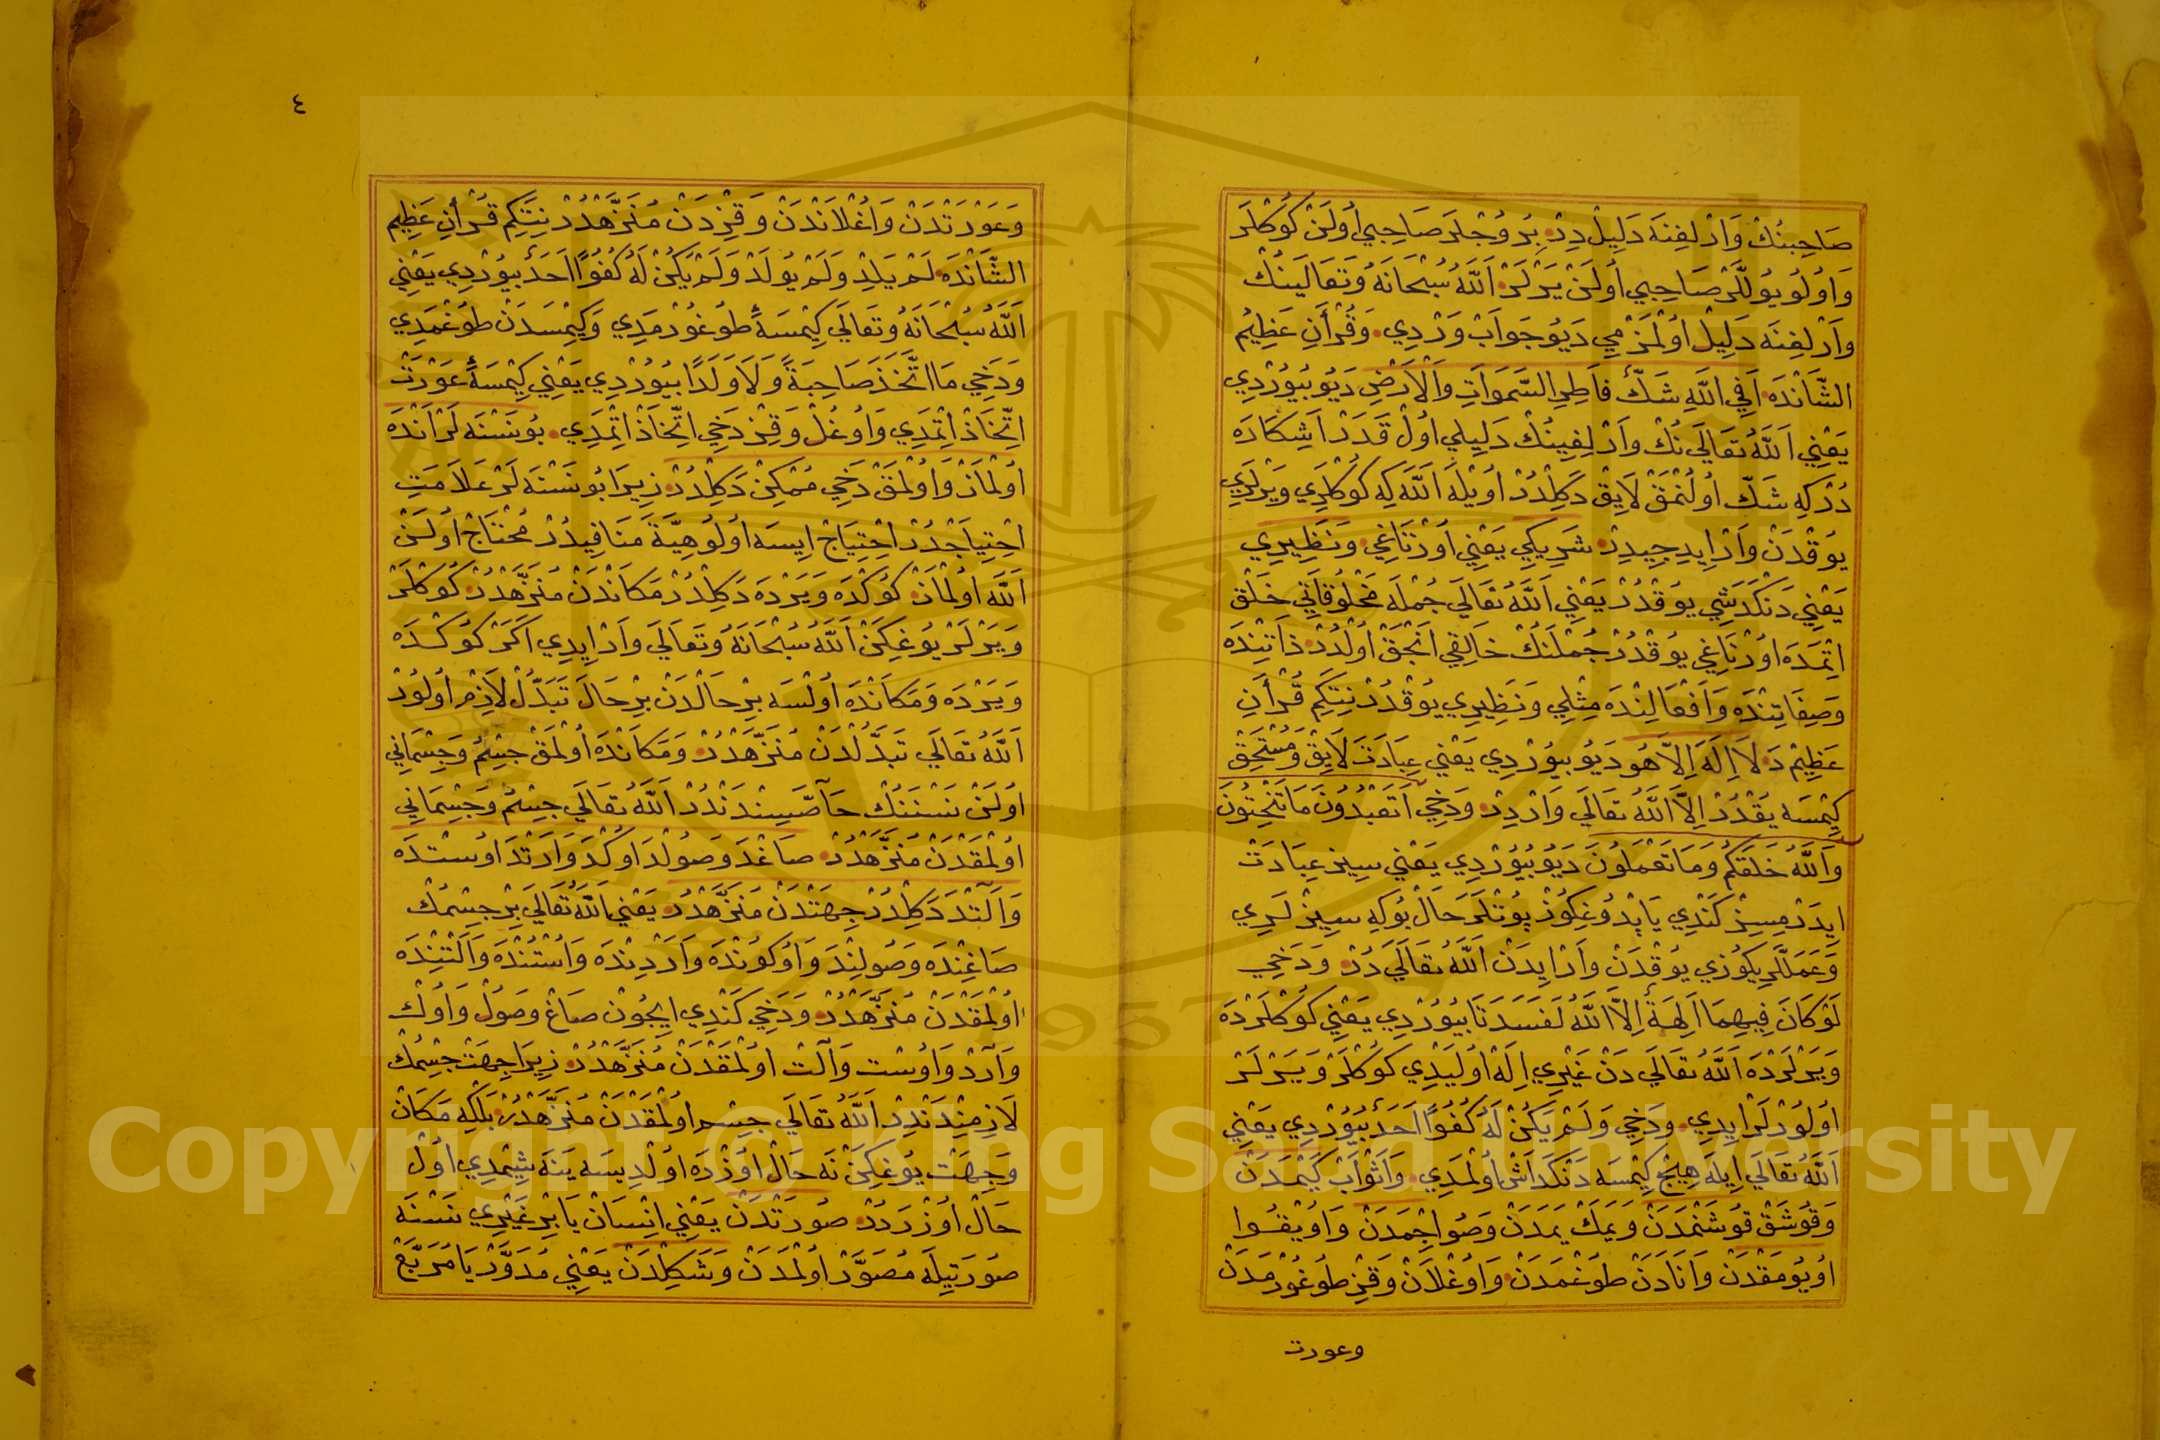 صَاحِبنُكْ وَارْلِغِنَه دَلِيلْ دِرْ بِرُوجْلَر صَاحِبِي اُولَنْ كُوكْلَر
وَاوُلُو يُولَّلَرْ صَاحِبِي اُولَنْ يَرْلَرْ اَللّٰهُ سُبْحَانَهُ وَتَعَالَينُكْ
وَارْلِغِنَه دَلِيلْ اوُلْمَزْمِي دَيُو جَوَابْ وَرْدِي وَقُرْأَنِ عَظِيمُ
الشَّانْدَه اَفِي اللّٰهِ شَكٌّ فَاطِرِ السَّمٰوَاتِ وَالْاَرْضِ دَيُو بُيُورْدِي
يَعْنِي اَللّٰهُ تَعَالَي نُكْ وَارْلِغِينُكْ دَلِيلِي اوُلْ قَدَرْ اَشِكَارَه
دُرْكِه شَكّ اُولُنْمَقْ لَايِقْ دَكِلْدُرْ اُويْلَه اَللّٰه كِه كُوكْلَرِي وَيَرْلَرِي
يُوقْدَنْ وَارْ اِيدِجِيدِرْ شَرِيكِي يَعْنِي اُورْتَاغِي وَنَظِيرِي
يَعْنِي دَنْكْدَشِي يُوقْدُرْ يَعْنِي اَللّٰهُ تَعَالَي جُمْلَه مَخْلُوقَاتِي خَلْق
اِتْمَدَه اوُرْتَاغِي يُوقْدُرْ جُمْلَنُكْ خَالِقِي اَنْجَقْ اُولْدُرْ ذَاتِنْدَه
وَصِفَاتِنْدَه وَاَفْعَالِنْدَه مِثْلِي وَنَظِيرِي يُوقْدُرْ نِتَكِم قُرْأَنِ
عَظِيمْ دَه لَا اِلَهَ اِلَّا هُو دَيُو بُيُورْدِي يَعْنِي عِبَادَتَ لَايِقْ وَمُسْتَحِقْ
كِيْمْسَه يُقْدُرْ اِلَّا اَللّٰهُ تَعَالَي وَارْدِرْ وَدَخِي اَتَعْبُدُونَ مَا تَنْحِتُونَ
وَاللّٰهُ خَلَقَكُمْ وَمَا تَعْمَلُونَ دَيُو بُيُورْدِي يَعْنِي سِيزْ عِبَادَتْ
اِيدَرْمِسِزْ كَنْدِي يَاپْدُوغِكُوزْ پُوتْلَرَ حَالْ بُوكِه سِيزْلَرِي
وَعَمَلْلَرِيكُوزِي يُوقْدَنْ وَارْ اِيدَنْ اَللّٰهُ تَعَالَي دُرْ وَدَخِي
لَوْكَانَ فِيهِمَا اَلِهَةٌ اِلَّا اللّٰهُ لَفَسَدَتَا بُيُورْدِي يَعْنِي كُوكْلَرْدَه
وَيَرْلَرْدَه اَللّٰهُ تَعَالَي دَنْ غَيْرِي اِلَهْ اُولَيْدِي كُوكْلَرْ وَيَرْلَرْ
اوُلُورْلَرْ اِيدِي وَدَخِي وَلَمْ يَكُنْ لَهُ كُفُوًا اَحَدٌ بُيُورْدِي يَعْنِي
اَللّٰهُ تَعَالَي اِيلَه هِيچْ كِيْمْسَه دَنْكَدَاشْ اُولْمَدِي وَاَثْوَابْ كَيْمَدَنْ
وَقُوشَقْ قُوشَنْمَدَنْ وَيَمَكْ يَمَدَنْ وَصُو اِچْمَدَنْ وَاوُيْقُو
اوُيُومَقْدَنْ وَانَادَنْ طُوغْمَدَنْ وَاوُغْلَانْ وَقِزْ طُوغُورْمَدَنْ
وعورت
٤
وَعَوْرَتْدَنْ وَاُغْلَانْدَنْ وَقِزْدَنْ مُنَزَّهْدُرْ نِتَكِم قُرْأَنِ عَظِيمُ
الشَّانْدَه لَمْ يَلِدْ وَلَمْ يُولَدْ وَلَمْ يَكُنْ لَهُ كُفُوًا اَحَدٌ بُيُورْدِي يَعْنِي
اَللّٰهُ سُبْحَانَهُ وَتَعَالَي كِيْمْسَه طُوغُورْمَدِي وَكِيْمْسَدَنْ طُوغْمَدِي
وَدَخِي مَا اتَّخَذَ صَاحِبَةً وَلَا وَلَدًا بُيُورْدِي يَعْنِي كِيْمْسَه عَوْرَتْ
اِتِّخَاذْ اِتْمَدِي وَاوُغُلْ وَقِزْ دَخِي اِتِّخَاذْ اِتْمَدِي بُونَسْنَه لَرْ اَنْدَه
اُولْمَازْ وَاوُلْمَقْ دَخِي مُمْكِنْ دَكِلْدُرْ زِيرَا بُو نَسْنَه لَرْ عَلَامَتِ
اِحْتِيَاجْدُرْ اِحْتِيَاجْ اِيسَه اُلُوهِيَّةَ مَنَافِيدُرْ مُحْتَاجْ اوُلَنْ
اَللّٰه اوُلْمَازْ كُوكْدَه وَيَرْدَه دَكِلْدُرْ مَكَانْدَنْ مُنَزَّهْدُرْ كُوكْلَرْ
وَيَرْلَرْ يُوغِكَنْ اَللّٰهُ سُبْحَانَهُ وَتَعَالَي وَارْ اِيدِي اَكَرْ كُوكْدَه
وَيَرْدَه وَمَكَانْدَه اوُلْسَه بِرْ حَالْدَنْ بِرْ حَالَ تَبَدُّلْ لَازِمْ اُولُورْ
اَللّٰهُ تَعَالَي تَبَدُّلْدَنْ مُنَزَّهْدُرْ وَمَكَانْدَه اُولْمَقْ جِسْمُ وَجِسْمَانِي
اوُلَنْ نَسْنَنُكْ خَاصَّسِنْدَنْدُرْ اَللّٰهُ تَعَالَي جِسْمُ وَجِسْمَانِي
اوُلْمَقْدَنْ مُنَزَّهْدُرْ صَاغْدَه وَصُولْدَه اوُكْدَه وَارْتَدَه اوُسْتْدَه
وَاَلْتْدَه دَكِلْدُرْ جِهَتْدَنْ مُنَزَّهْدُرْ يَعْنِي اَللّٰهُ تَعَالَي بِرْ جِسْمُكْ
صَاغِنْدَه وَصُولِنْدَه وَاوُكُونْدَه وَارْدِنْدَه وَاُسْتُنْدَه وَاَلْتِنْدَه
اوُلْمَقْدَنْ مُنَزَّهْدُرْ وَدَخِي كَنْدِي اِيچُونْ صَاغْ وَصُولْ وَاوُكْ
وَآرْدْ وَاوُسْتْ وَآلْتْ اوُلْمَقْدَنْ مُنَزَّهْدُرْ زِيرَا جِهَتْ جِسْمُكْ
لَازِمِنْدَنْدِرْ اَللّٰهُ تَعَالَي جِسْم اوُلْمَقْدَنْ مُنَزَّهْدُرْ بَلْكِه مَكَانْ
وَجِهَتْ يُوغِكَنْ نَه حَالْ اوُزْرَه اوُلْدِيسَه يَنَه شِيمْدِي اوُلْ
حَالْ اوُزْرَه دُرْ صُورَتْدَنْ يَعْنِي اِنْسَانْ يَا بِرْ غَيْرِي نَسْنَه
صُورَتِيلَه مُصَوَّرْ اوُلْمَدَنْ وَشَكِلْدَنْ يَعْنِي مُدَوَّرْ يَا مُرَبَّعْ
Copyright © King Saud University
1957